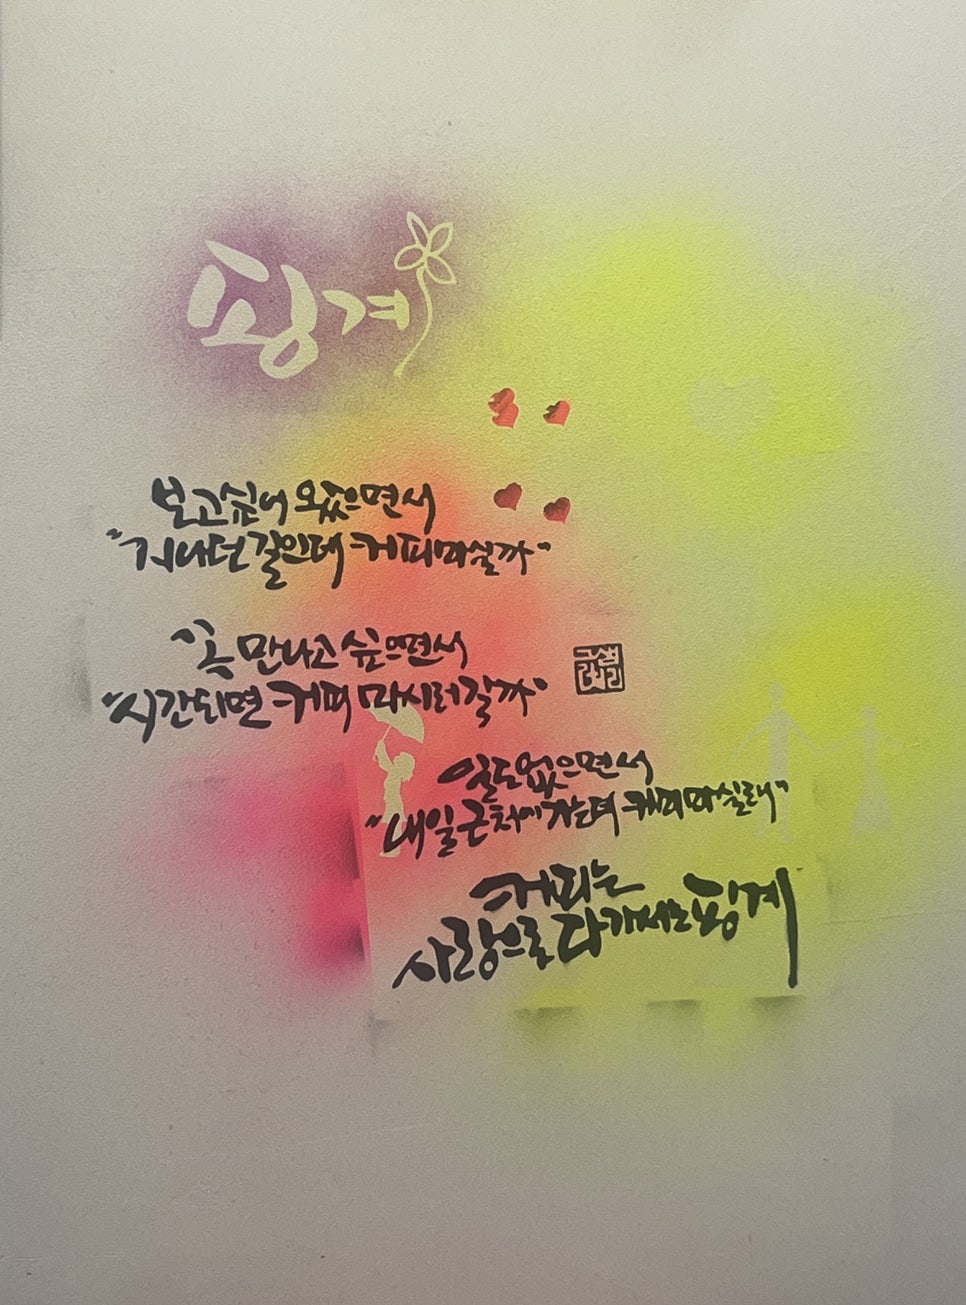 핑계
보고싶어 왔으면서
"지나던 길인데 커피마실까"
꼭 만나고 싶으면서
"시간되면 커피 마시러갈까"
일도없으면서
"내일 근처에 가는데 커피마실래"
커피는
사랑으로 다가서는 핑계